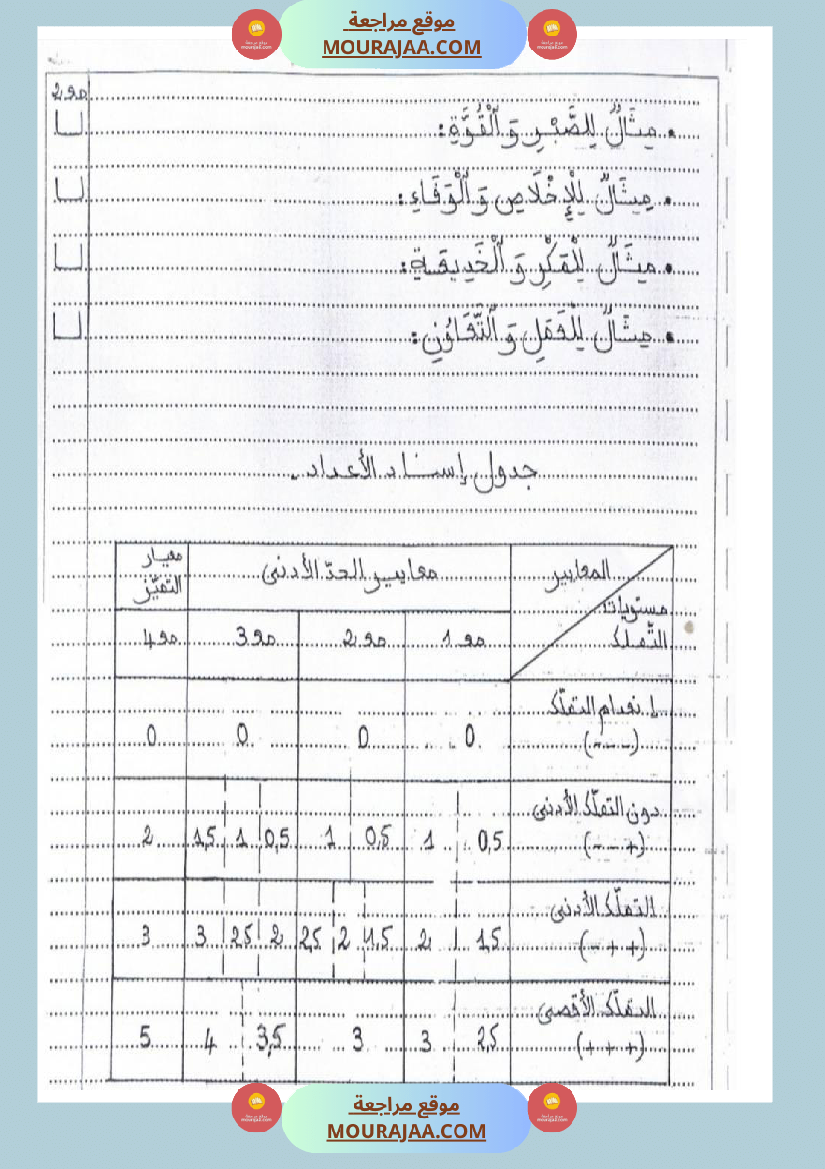 موقع مراجعة
MOURAJAA.COM
مع2
• مِثَالٌ لِلصَّبْرِ وَ الْقُوَّةِ:
• مِثَالٌ لِلْإِخْلَاصِ وَ الْوَفَاءِ:
• مِثَالٌ لِلْمَكْرِ وَ الْخَدِيعَةِ:
• مِثَالٌ لِلْعَمَلِ وَ التَّعَاوُنِ:
جدول إسناد الأعداد.
المعايير
مستويات التّملك
معايير الحدّ الأدنى
معيار التميّز
مع 1 مع 2 مع 3 مع 4
إنعدام التملّك (---) 0 0 0 0
دون التملّك الأدنى (+--) 0,5 1 0,5 1 0,5 1 1,5 2
التملّك الأدنى (++-) 1,5 2 1,5 2 2,5 2 2,5 3 3
التملّك الأقصى (+++) 2,5 3 3 3,5 4 5
موقع مراجعة
MOURAJAA.COM